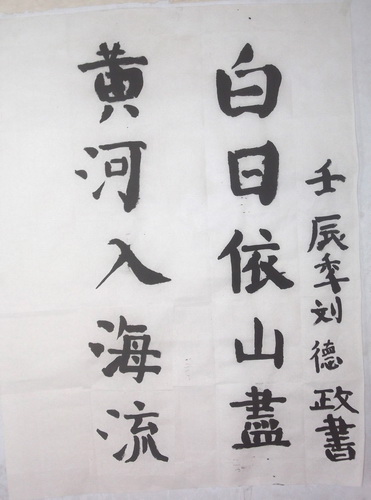 白日依山盡
黄河入海流
壬辰年刘德政書